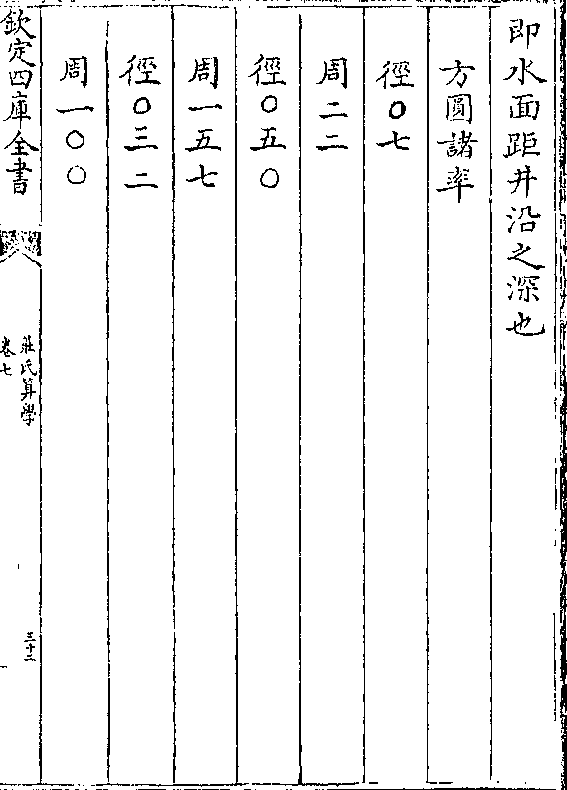 即水面距井沿之深也
方圓諸率
徑〇七
周二二
徑〇五〇
周一五七
徑〇三二
周一〇〇
欽定四庫全書
莊氏算學
卷七
三十二